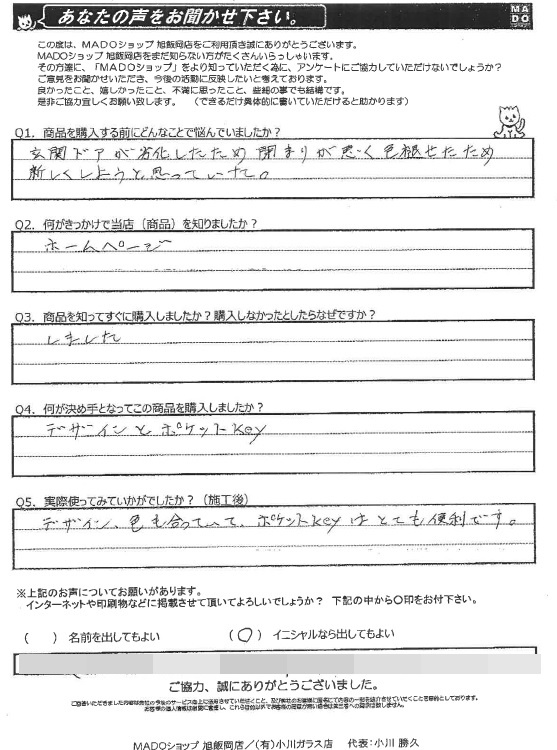 あなたの声をお聞かせ下さい。
MADO
この度は、MADOショップ 旭飯岡店をご利用頂き誠にありがとうございます。
MADOショップ 旭飯岡店をまだ知らない方がたくさんいらっしゃいます。
その方達に、「MADOショップ」をより知っていただく為に、アンケートにご協力していただけないでしょうか？
ご意見をお聞かせいただき、今後の活動に反映したいと考えております。
良かったこと、嬉しかったこと、不満に思ったこと、些細の事でも結構です。
是非ご協力宜しくお願い致します。（できるだけ具体的に書いていただけると助かります）
Q1．商品を購入する前にどんなことで悩んでいましたか？
玄関ドアが劣化したため閉まりが悪く色褪せたため
新しくしようと思っていた。
Q2．何がきっかけで当店（商品）を知りましたか？
ホームページ
Q3．商品を知ってすぐに購入しましたか？購入しなかったとしたらなぜですか？
しました
Q4．何が決め手となってこの商品を購入しましたか？
デザインとポケットKey
Q5．実際使ってみていかがでしたか？（施工後）
デザイン、色も合っていて、ポケットKeyはとても便利です。
※上記のお声についてお願いがあります。
インターネットや印刷物などに掲載させて頂いてよろしいでしょうか？ 下記の中から〇印をお付下さい。
（　）名前を出してもよい （〇）イニシャルなら出してもよい
ご協力、誠にありがとうございました。
MADOショップ 旭飯岡店／（有）小川ガラス店 代表：小川 勝久